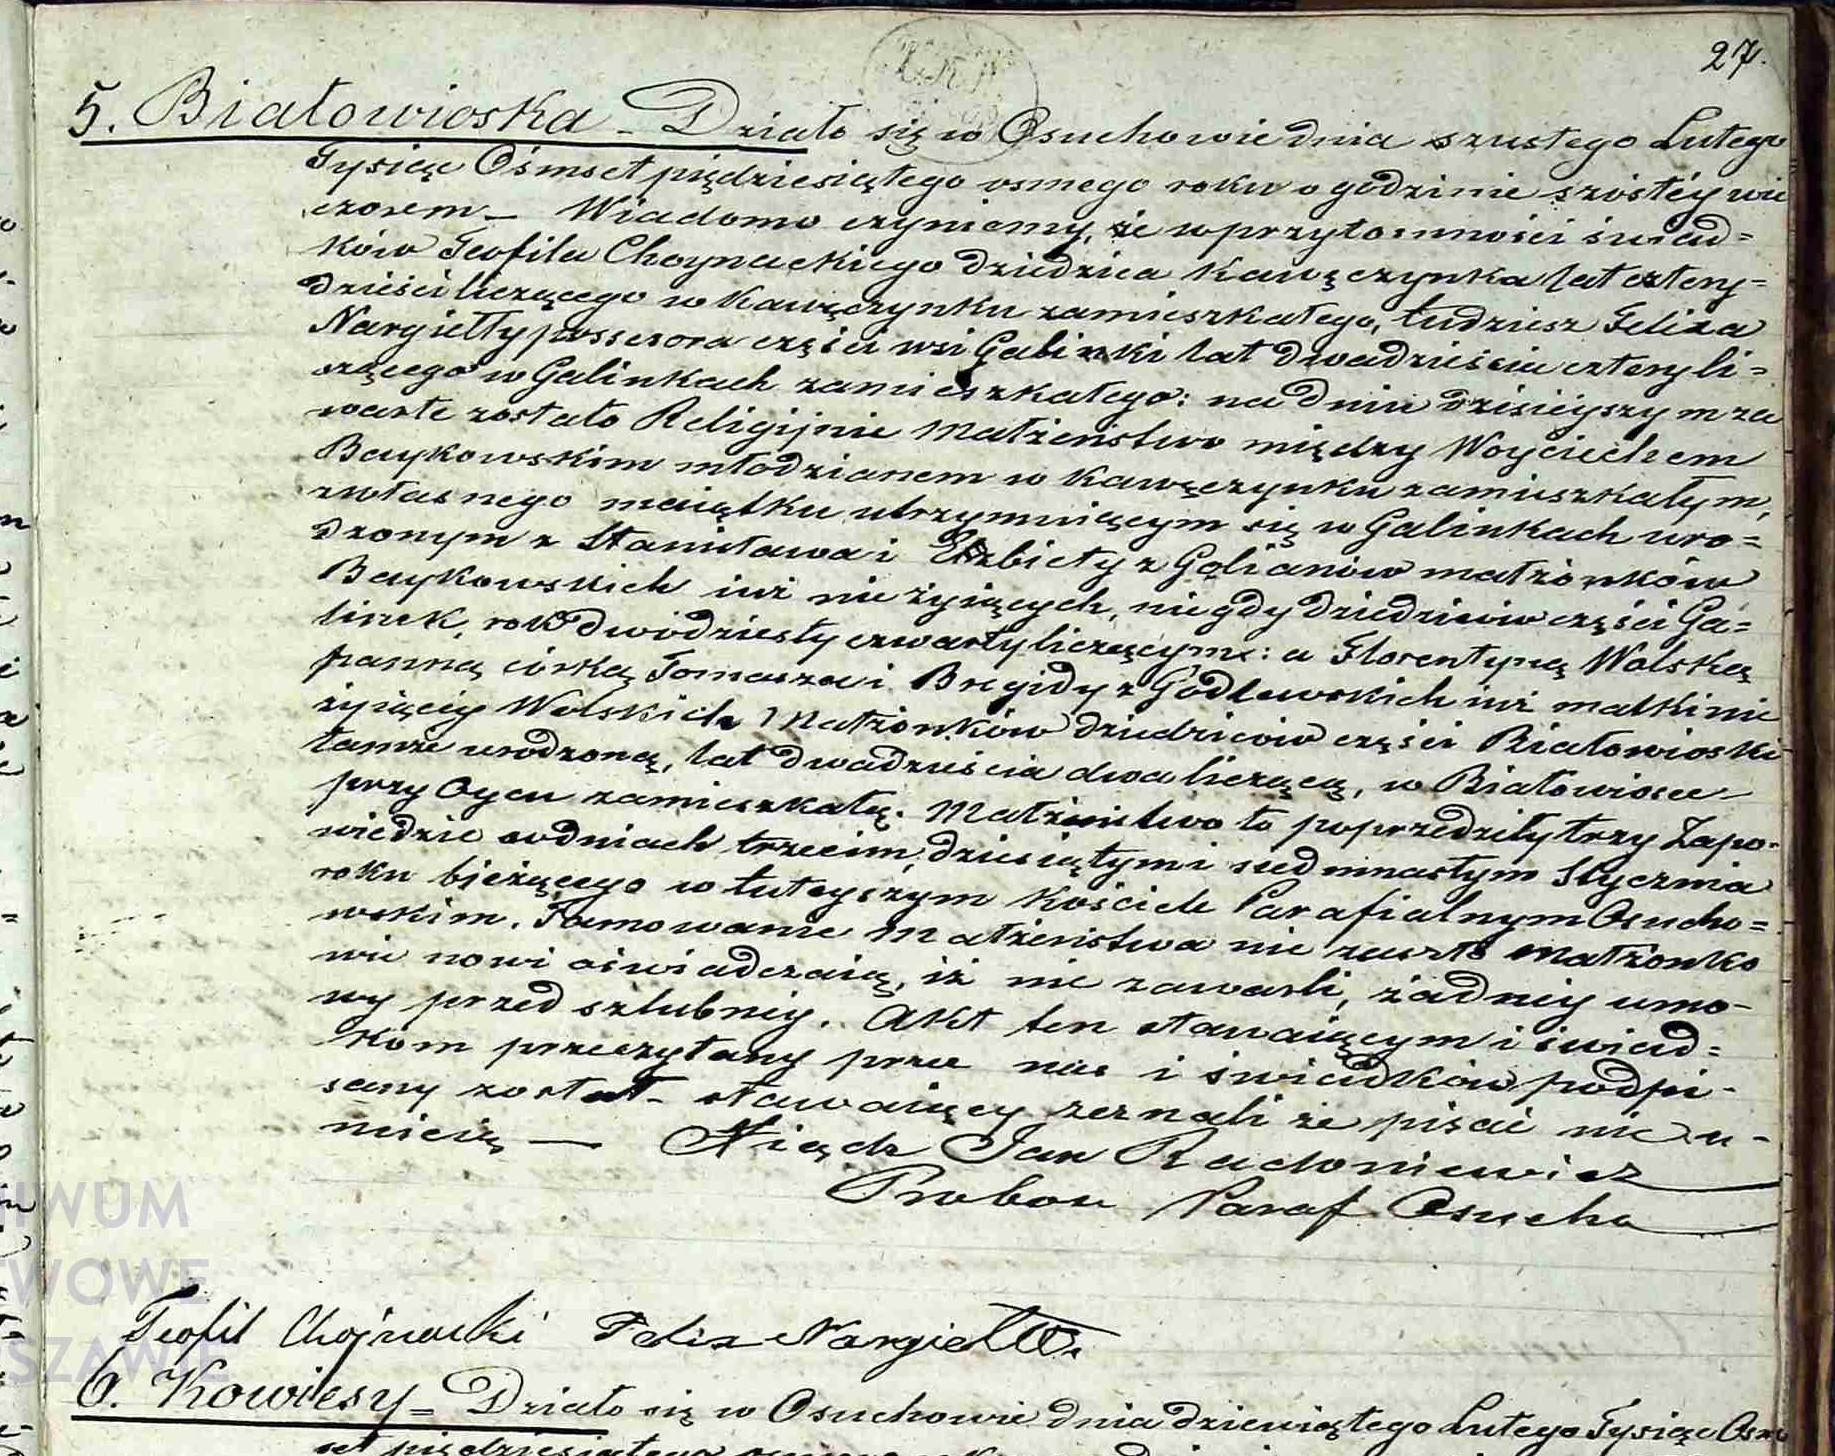 27.
5. Białowioska - Działo się w Osuchowie dnia szustego Lutego
Tysiąc Ośmset piędziesiątego osmego roku o godzinie szóstéy wie
czorem - Wiadomo czyniemy, że w przytomności świad=
ków Teofila Choynackiego dziedzica Kawęczynka lat cztery=
dzieści liczącego w Kawęczynku zamieszkałego, tudziesz Felixa
Nargiełły possesora części wsi Galinki lat dwadzieścia cztery li=
czącego w Galinkach zamieszkałego: na dniu dzisieyszym za
warte zostało Religijnie Małżeństwo między Woyciechem
Baykowskim młodzianem w Kawęczynku zamieszkałym,
z własnego maiątku utrzymuiącym się w Galinkach uro=
dzonym z Stanisława i Elżbiety z Golianów małżonków
Baykowskich iuż nie żyiących, niegdy dziedziców części Ga=
linek, rok dwódziesty czwarty liczącym: a Florentyną Wolską
panną córką Tomasza i Brygidy z Godlewskich iuż matki nie
żyiącéy Wolskich Małżonków dziedziców części Białowioski
tamże urodzoną, lat dwadzieścia dwa liczącą, w Białowiosce
przy Oycu zamieszkałą. Małżeństwo to poprzedziły trzy Zapo-
wiedzie w dniach trzecim, dziesiątym i siedmnastym Stycznia
roku bieżącego w tuteyszym Kościele Parafialnym Osucho=
wskim. Tamowanie Małżeństwa nie zaszło Małżonko
wie nowi oświadczaią, iż nie zawarli, żadnéy umo-
wy przed szlubnéy. Akt ten stawaiącym i świad=
kom przeczytany przez nas i świadków podpi-
sany został - stawaiący zeznali że pisać nie u-
mieią — Xiądz Jan Radoniewicz
Probosz Paraf Osucho
Teofil Chojnacki Felix Nargiełło.
6. Kowiesy = Działo się w Osuchowie dnia dziewiątego Lutego Tysiąc Ośm
set pięćdziesiątego osmego
IWUM
WOWE
SZAWIE